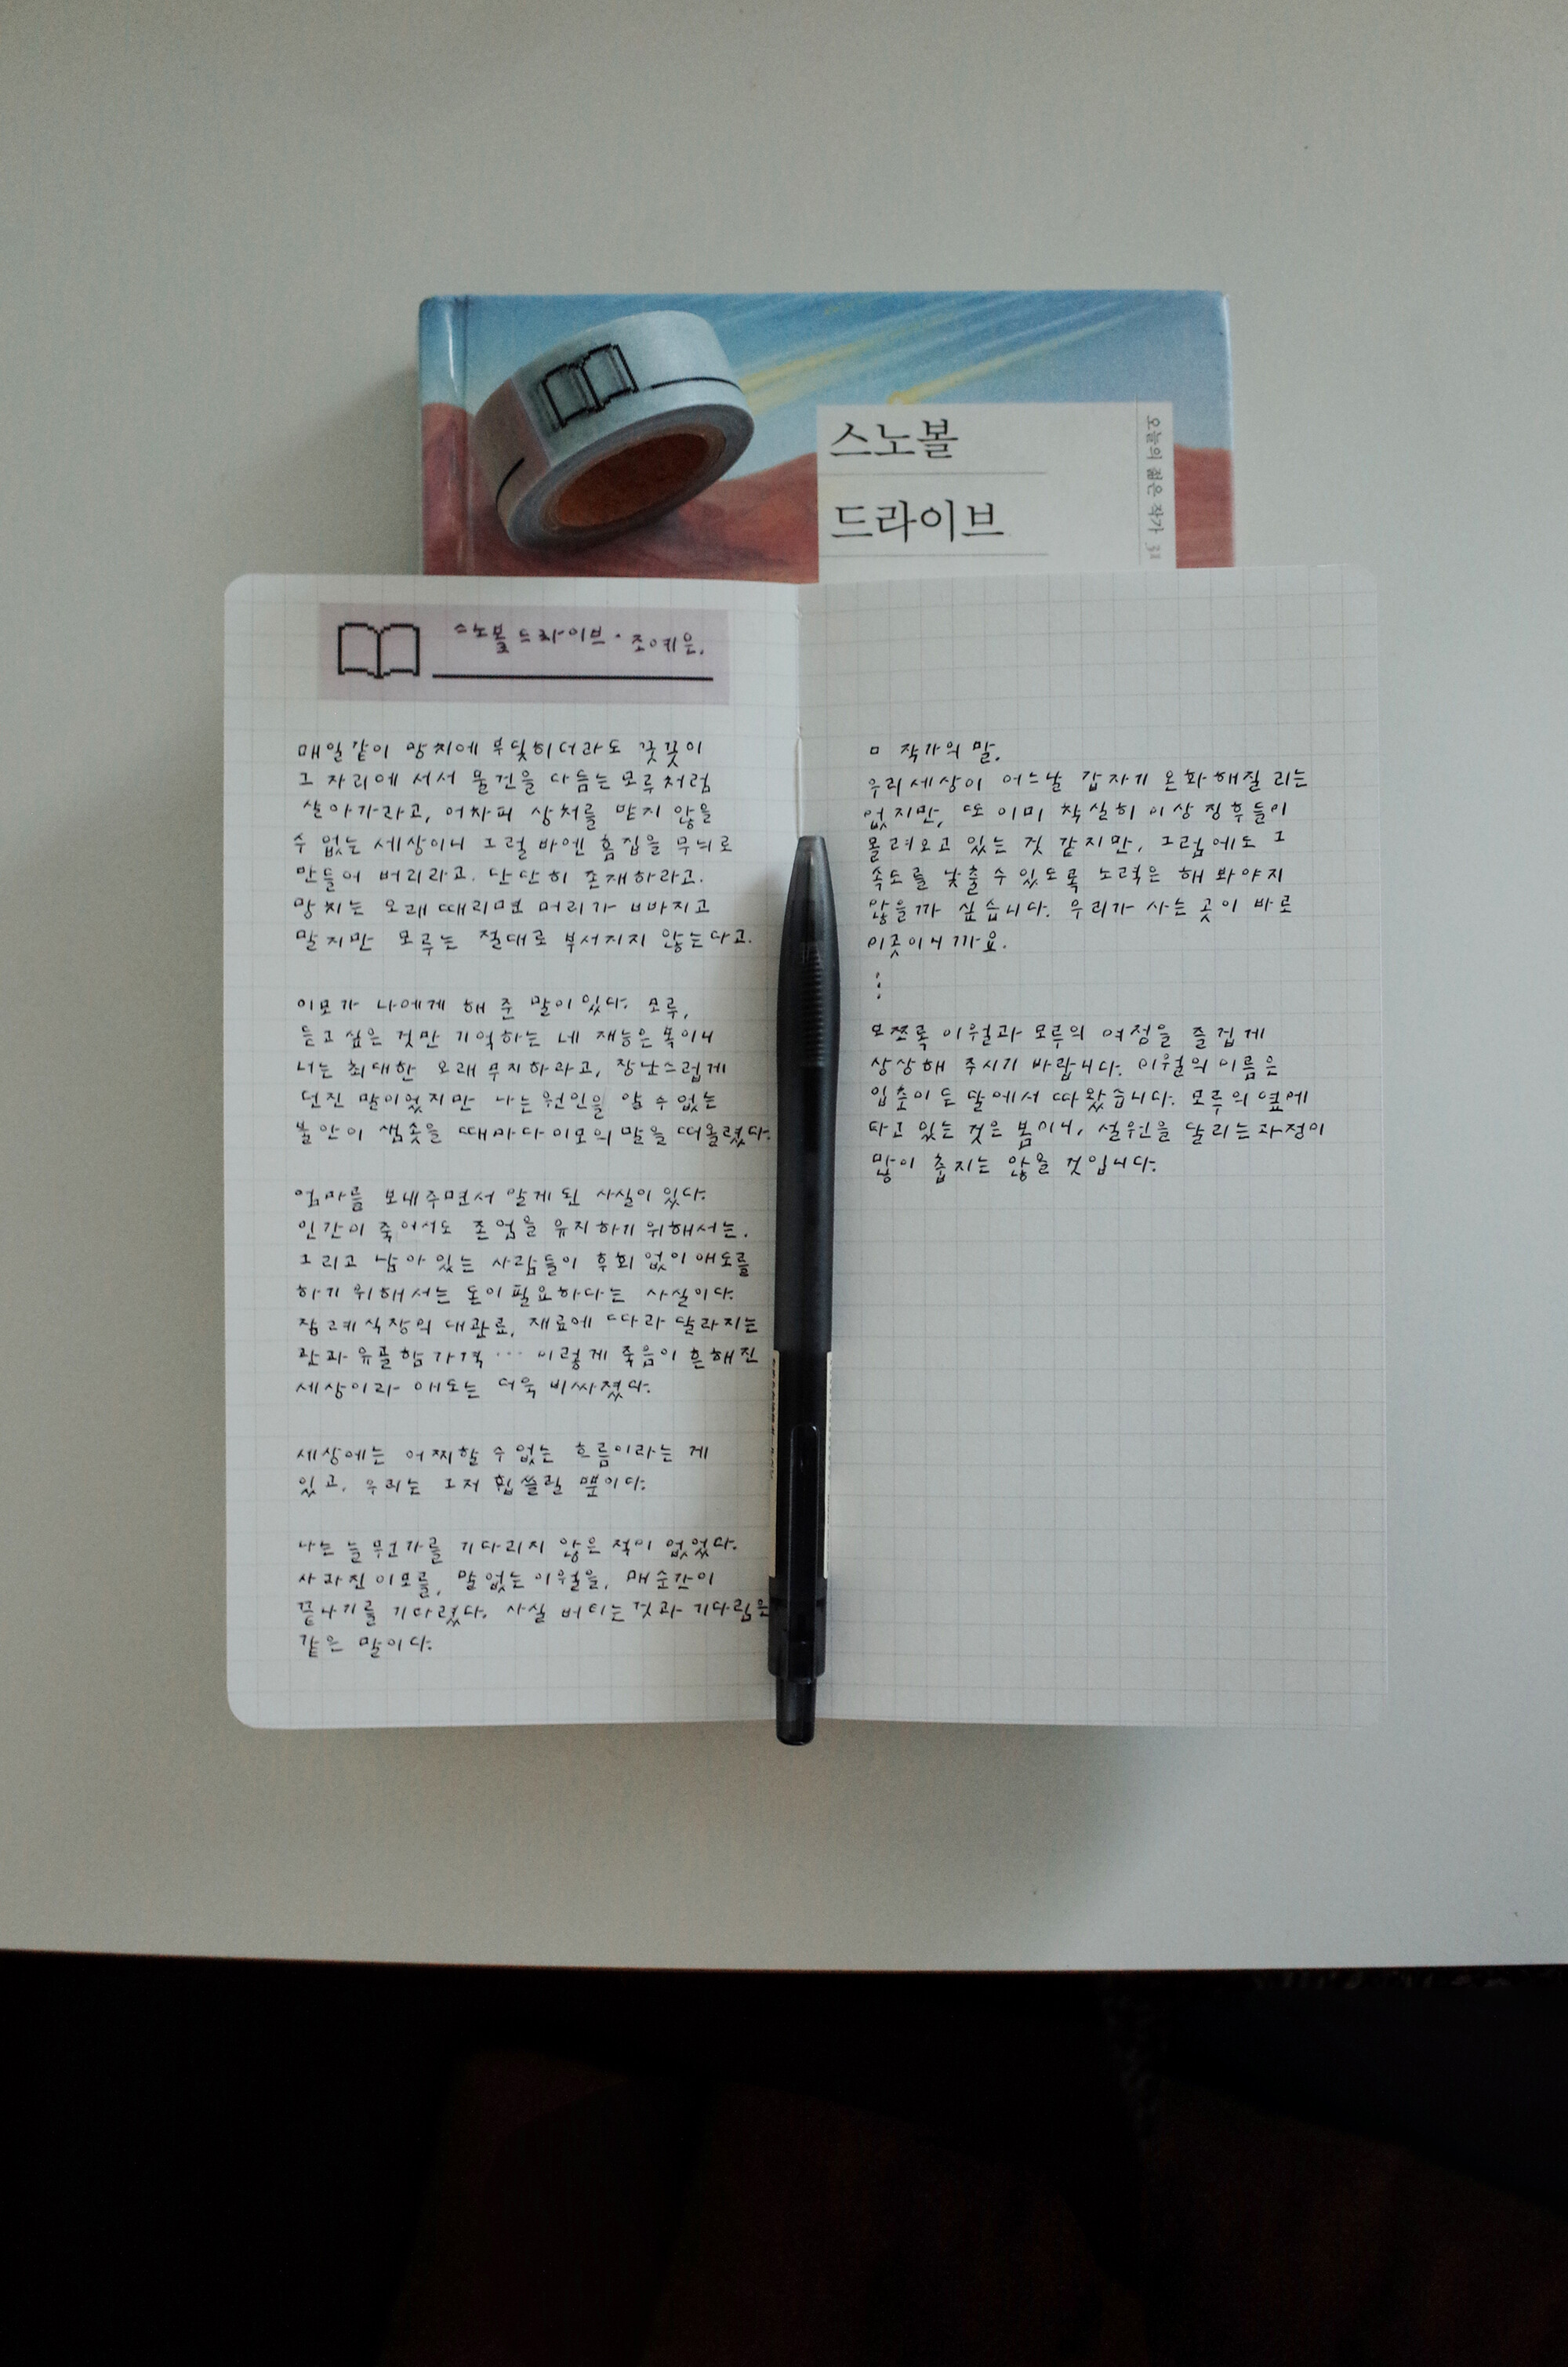 스노볼
드라이브
오늘의 젊은 작가 31
스노볼 드라이브 · 조예은.
매일같이 망치에 부딪히더라도 꿋꿋이
그 자리에 서서 물건을 다듬는 모루처럼
살아가라고, 어차피 상처를 받지 않을
수 없는 세상이니 그럴 바엔 흠집을 무늬로
만들어 버리라고. 단단히 존재하라고.
망치는 오래 때리면 머리가 빠지고
말지만 모루는 절대로 부서지지 않는다고.
이모가 나에게 해 준 말이 있다. 모루,
듣고 싶은 것만 기억하는 네 재능은 복이니
너는 최대한 오래 무지하라고, 장난스럽게
던진 말이었지만 나는 원인을 알 수 없는
불안이 샘솟을 때마다 이모의 말을 떠올렸다.
엄마를 보내주면서 알게 된 사실이 있다.
인간이 죽어서도 존엄을 유지하기 위해서는.
그리고 남아 있는 사람들이 후회 없이 애도를
하기 위해서는 돈이 필요하다는 사실이다.
장례식장의 대관료, 재료에 따라 달라지는
관과 유골함 가격 … 이렇게 죽음이 흔해진
세상이라 애도는 더욱 비싸졌다.
세상에는 어찌할 수 없는 흐름이라는 게
있고, 우리는 그저 휩쓸릴 뿐이다.
나는 늘 무언가를 기다리지 않은 적이 없었다.
사라진 이모를, 말없는 이월을, 매 순간이
끝나기를 기다렸다. 사실 버티는 것과 기다림은
같은 말이다.
▫ 작가의 말.
우리 세상이 어느날 갑자기 온화해질 리는
없지만, 또 이미 착실히 이상 징후들이
몰려오고 있는 것 같지만, 그럼에도 그
속도를 낮출 수 있도록 노력은 해 봐야지
않을까 싶습니다. 우리가 사는 곳이 바로
이곳이니까요.
⋮
모쪼록 이월과 모루의 여정을 즐겁게
상상해 주시기 바랍니다. 이월의 이름은
입춘이 든 달에서 따왔습니다. 모루의 옆에
타고 있는 것은 봄이니, 설원을 달리는 과정이
많이 춥지는 않을 것입니다.